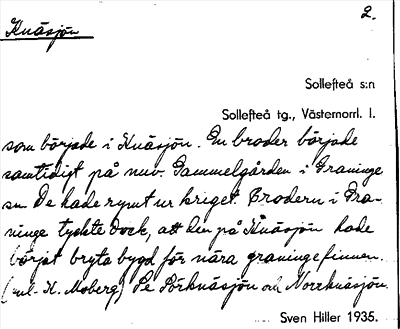 2.
Knäsjön
Sollefteå s:n
Sollefteå tg., Västernorrl. l.
som började i Knäsjön. En broder började
samtidigt på nuv. Gammelgården i Graninge
sn. De hade rymt ur kriget. Brodern i Gra-
ninge tyckte dock, att den på Knäsjön hade
börjat bryta bygd för nära graningefinnen.
(enl. K. Moberg) Se Sörknäsjön och Norrknäsjön.
Sven Hiller 1935.